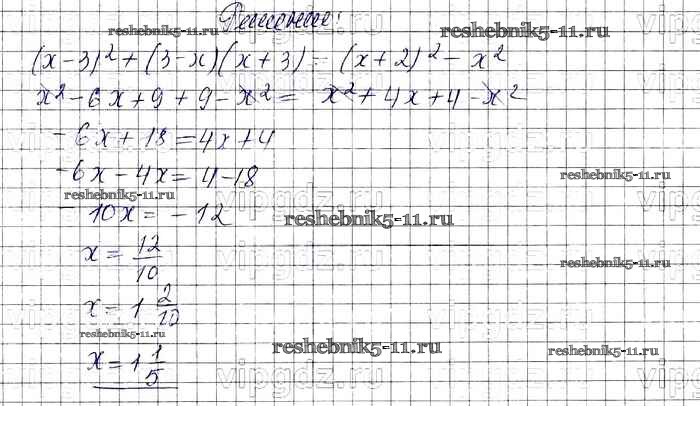 Решение:
reshebnik5-11.ru reshebnik5-11.ru
(x-3)² + (3-x)(x+3) = (x+2)² - x²
x² - 6x + 9 + 9 - x² = x² + 4x + 4 - x²
-6x + 18 = 4x + 4
-6x - 4x = 4 - 18
reshebnik5-11.ru
reshebnik5-11.ru
-10x = -12
reshebnik5-11.ru
x = 12/10
reshebnik5-11.ru
x = 1 2/10
reshebnik5-11.ru
x = 1 1/5
reshebnik5-11.ru
reshebnik5-11.ru
vipgdz.ru
vipgdz.ru
vipgdz.ru
vipgdz.ru